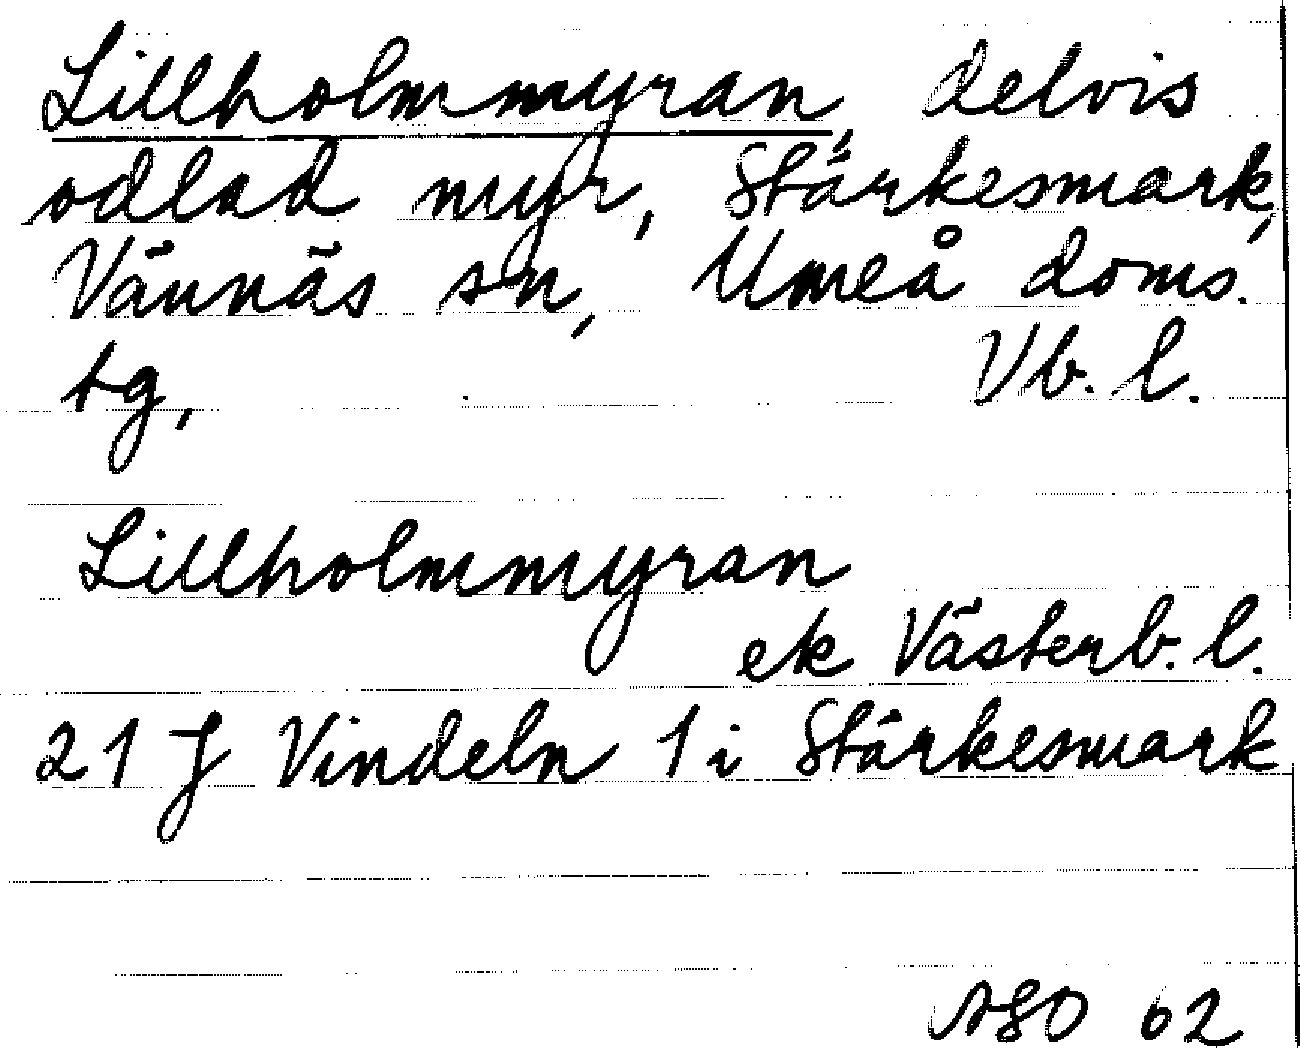 Lillholmmyran, delvis
odlad myr, Stärkesmark,
Vännäs sn, Umeå doms.
tg, Vb. l.
Lillholmmyran
ek Västerb. l.
21 J Vindeln 1 i Stärkesmark
ASO 62